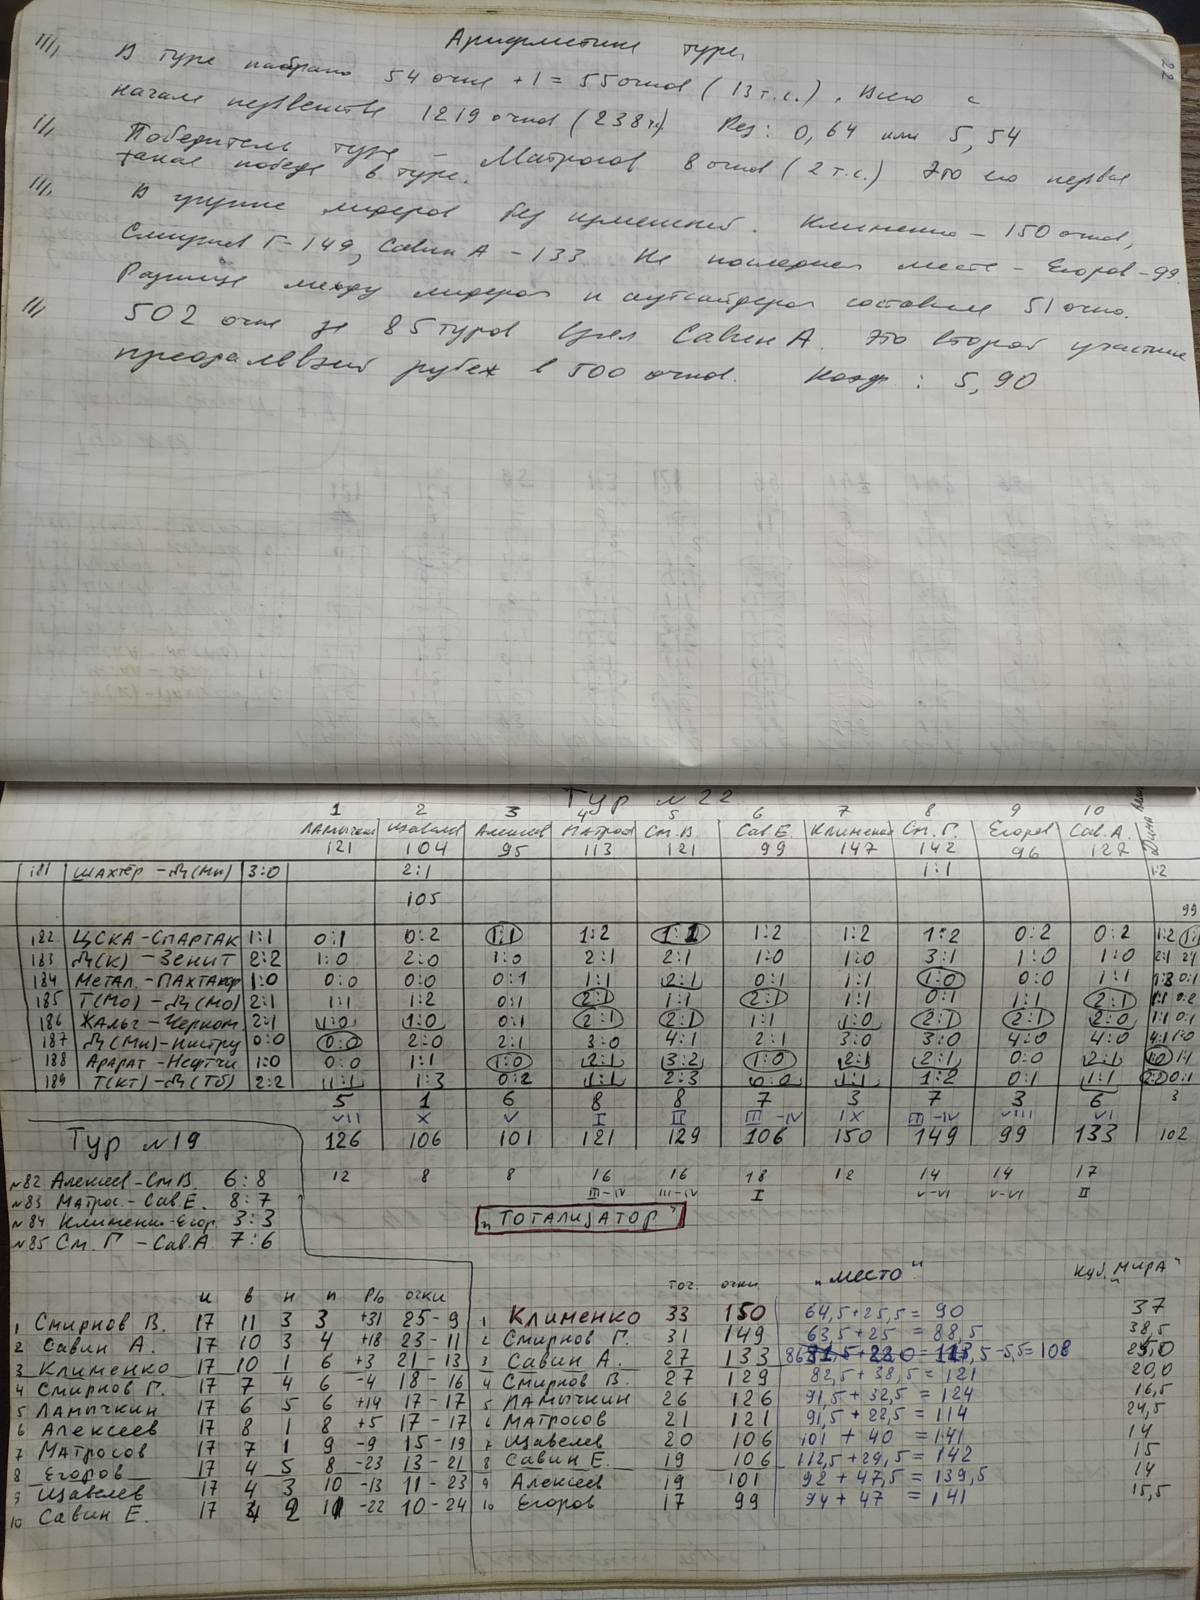 22
Арифметика тура.
В туре набрано 54 очка +1 = 55 очков (13 т.с.). Всего с
начала первенства 1219 очков (238 т.с.) Рез: 0,64 или 5,54
Победитель тура – Матросов 8 очков (2 т.с.) Это его первая
такая победа в туре.
В группе лидеров без изменений. Клименко – 150 очков,
Смирнов Г – 149, Савин А – 133. На последнем месте – Егоров – 99.
Разница между лидером и аутсайдером составила 51 очко.
502 очка за 85 туров взял Савин А. Это второй участник
преодолевший рубеж в 500 очков. Коэф: 5,90
Тур №22
1 2 3 4 5 6 7 8 9 10
Ламычкин Щавелев Алексеев Матросов См.В. Сав.Е. Клименко См.Г. Егоров Сав.А.
121 104 95 113 121 99 147 142 96 127
181 Шахтёр – Д(Мн) 3:0 2:1 1:1 1:2
105 99
182 ЦСКА – Спартак 1:1 0:1 0:2 1:1 1:2 1:1 1:2 1:2 1:2 0:2 0:2 1:2 1:1
183 Д(К) – Зенит 2:2 1:0 2:0 1:0 2:1 2:1 1:0 1:0 3:1 1:0 1:0 2:1 2:1
184 Метал. – Пахтакор 1:0 0:0 0:0 0:1 1:1 2:1 0:1 1:1 1:0 0:0 1:1 1:3 0:1
185 Т(Мо) – Д(Мо) 2:1 1:1 1:2 0:1 2:1 1:1 2:1 1:1 0:1 1:1 2:1 1:1 0:2
186 Жальг – Черном 2:1 1:0 1:0 0:1 2:1 2:1 1:1 1:0 2:1 2:1 2:0 1:1 0:1
187 Д(Мн) – Нистру 0:0 0:0 2:0 2:1 3:0 4:1 2:1 3:0 3:0 4:0 4:0 4:1 1:0
188 Арарат – Нефтчи 1:0 0:0 1:1 1:0 2:1 3:2 1:0 2:1 2:1 0:0 2:1 1:0 1:1
189 Т(Кт) – Д(Тб) 2:2 1:1 1:3 0:2 1:1 2:3 0:0 1:1 1:2 0:1 1:1 2:2 0:1
5 1 6 8 8 7 3 7 3 6 3
VII X V I II III–IV IX III–IV VIII VI
126 106 101 121 129 106 150 149 99 133 102
12 8 8 16 16 18 12 14 14 17
III–IV III–IV I V–VI V–VI II
Тур №19
№82 Алексеев – См В. 6:8
№83 Матрос. – Сав.Е. 8:7
№84 Клименко – Егор. 3:3
№85 См. Г – Сав.А 7:6
и в н п Р/о очки
1 Смирнов В. 17 11 3 3 +31 25–9
2 Савин А. 17 10 3 4 +18 23–11
3 Клименко 17 10 1 6 +3 21–13
4 Смирнов Г. 17 7 4 6 –4 18–16
5 Ламычкин 17 6 5 6 +14 17–17
6 Алексеев 17 8 1 8 +5 17–17
7 Матросов 17 7 1 9 –9 15–19
8 Егоров 17 4 5 8 –23 13–21
9 Щавелев 17 4 3 10 –13 11–23
10 Савин Е. 17 4 2 11 –22 10–24
„Тотализатор"
точ. очки „Место" Куб. „Мира"
1 Клименко 33 150 64,5+25,5 = 90 37
2 Смирнов Г. 31 149 63,5+25 = 88,5 38,5
3 Савин А. 27 133 –5,5=108
4 Смирнов В. 27 129 82,5+38,5 = 121 20,0
5 Ламычкин 26 126 91,5+32,5 = 124 16,5
6 Матросов 21 121 91,5+22,5 = 114 24,5
7 Щавелев 20 106 101 + 40 = 141 14
8 Савин Е. 19 106 112,5+29,5 = 142 15
9 Алексеев 19 101 92 + 47,5 = 139,5 14
10 Егоров 17 99 94 + 47 = 141 15,5